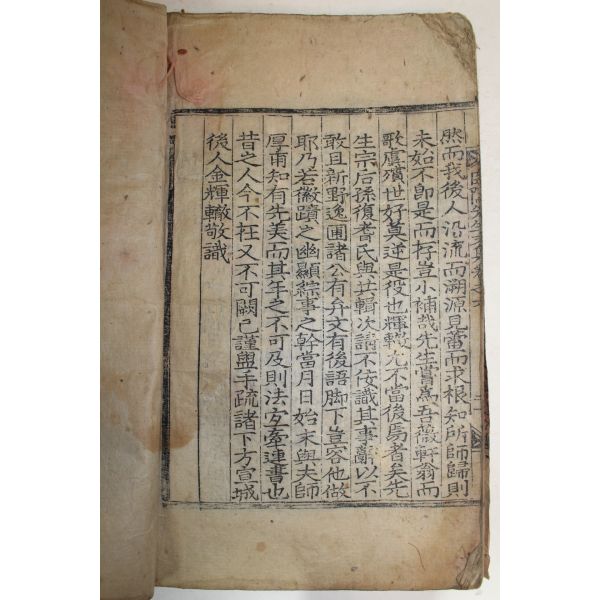 然而我後人沿流而溯源見蕾而求根知所師歸則
未始不卽是而存豈小補哉先生嘗爲吾薇軒翁而
歌虞殯世好莫逆是役也輝轍尤不當後焉者矣先
生宗后孫復耆氏與共輯次請不佞識其事辭以不
敢且新野逸圃諸公有弁文有後語脚下豈容他做
耶乃若徽蹟之幽顯綜事之幹當月日始末與夫師
厚甫知有先美而其年之不可及則法宜牽連書也
昔之人今不在又不可闕已謹盥手疏諸下方宣城
後人金輝轍敬識
先生文集卷之六